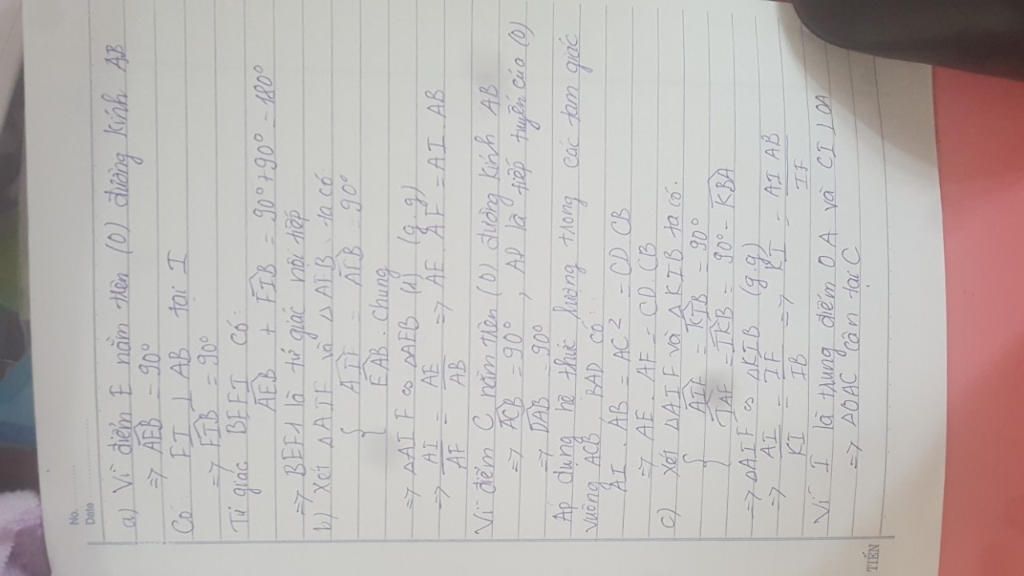 No.
Date
a) Vì điểm E nằm trên (O) đường kính AB
=> AEB = 90°
Có FI ⊥ AB tại I
=> FIB = 90°
Tứ giác BEFI có:
AEB + FIB = 90° + 90° = 180°
=> BEFI là tứ giác nội tiếp
b) Xét △AIF và △AEB, ta có
{ AIF = AEB = 90°
EAB: chung
=> △AIF ∽ △AEB (g.g)
=> AI/AF = AE/AB => AE. AF = AI. AB
Vì điểm C nằm trên (O) đường kính AB
=> ACB = 90°, AD là tiếp tuyến của (O)
=> DAB = 90°
Áp dụng hệ thức lượng trong các tam giác
vuông ACB, BAD có:
AI. AB = AC² = CD CB
=> AE. AF = CD CB
c) Xét △AIF và △KIB ta có:
{ AIF = KIB = 90°
IAF = IKB = 90° - KBA
=> △AIF ∽ △KIB (g.g)
=> AI/KI = IF/IB => KI = AI AB/IF
Vì I là trung điểm OA và CI ⊥ OA
=> △OAC cân tại C
TIẾN